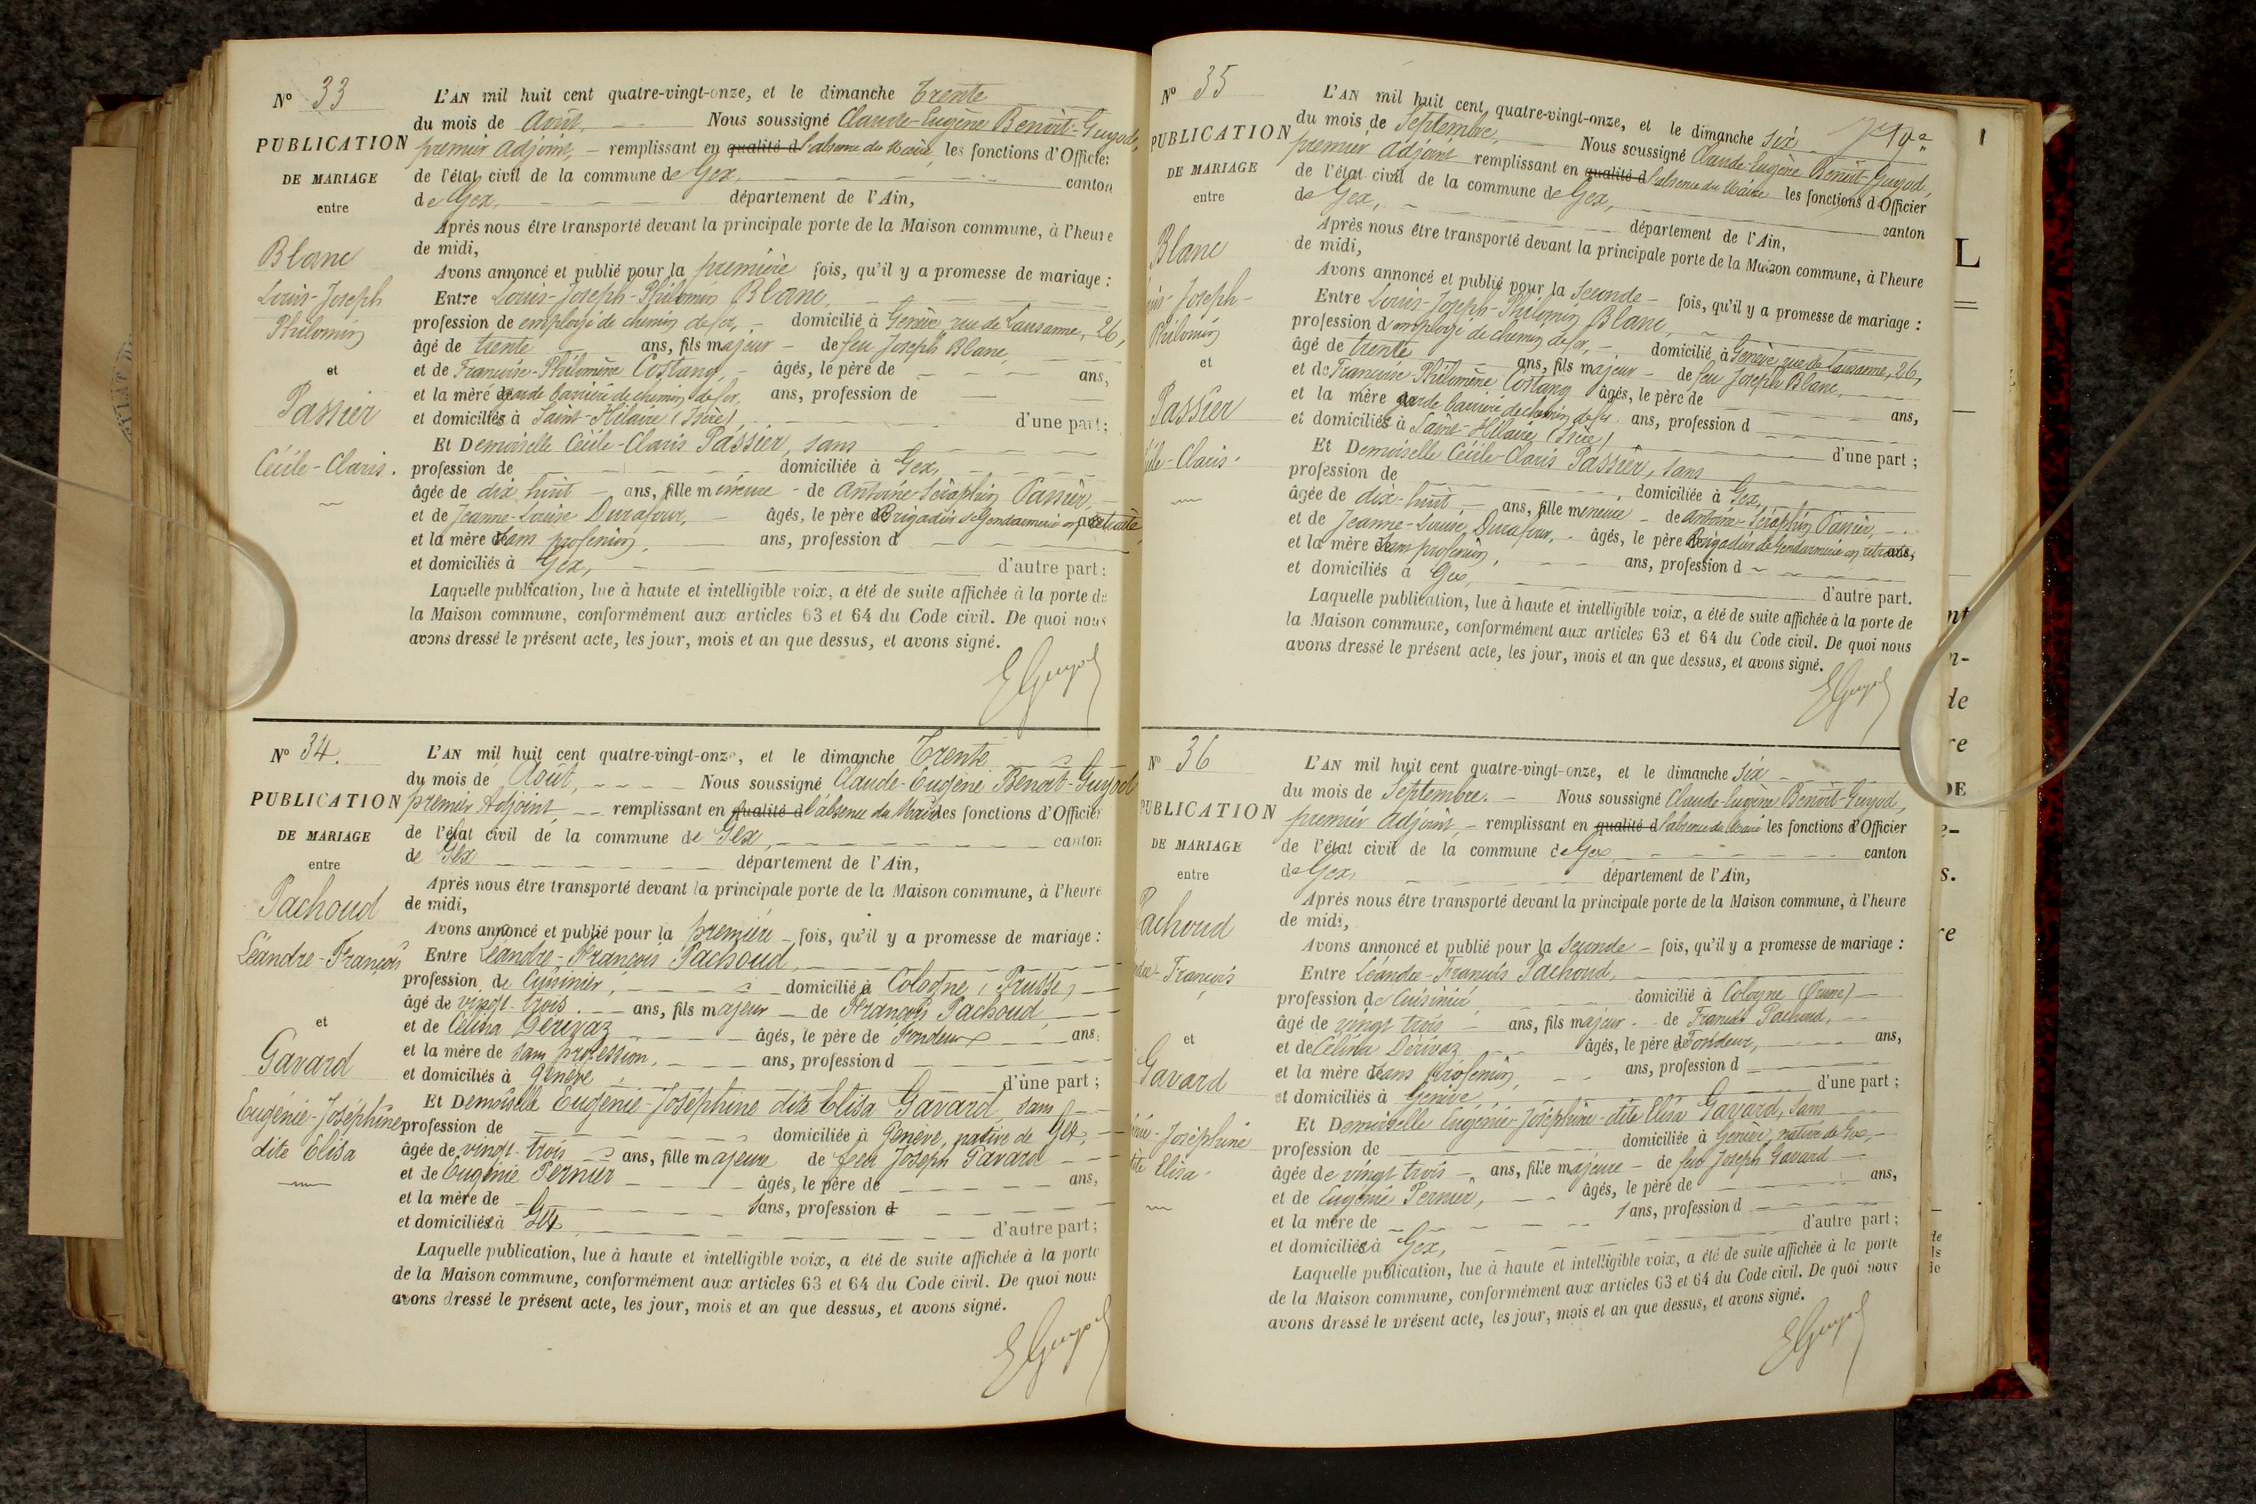 N° 33
PUBLICATION
DE MARIAGE
entre
Blanc
Louis-Joseph
Philomin
et
Passier
Cécile-Claris.
L'AN mil huit cent quatre-vingt-onze, et le dimanche Trente
du mois de Août, Nous soussigné Claude-Eugène Benoit-Guyod,
premier Adjoint, remplissant en qualité d l'absence du Maire, les fonctions d'Officier
de l'état civil de la commune de Gex, canton
de Gex, département de l'Ain,
Après nous être transporté devant la principale porte de la Maison commune, à l'heure
de midi,
Avons annoncé et publié pour la première fois, qu'il y a promesse de mariage :
Entre Louis-Joseph-Philomin Blanc,
profession de employé de chemin de fer, domicilié à Genève, rue de Lausanne, 26,
âgé de trente ans, fils majeur de feu Joseph Blanc,
et de Françoise-Philomène Costang, âgés, le père de ans,
et la mère de garde barrière de chemin de fer, ans, profession de
et domiciliés à Saint-Hilaire (Isère) d'une part ;
Et Demoiselle Cécile-Claris Passier, sans
profession de domiciliée à Gex,
âgée de dix huit ans, fille mineure de Antoine-Séraphin Passier,
et de Jeanne-Louise Durafour, âgés, le père de Brigadier de Gendarmerie en retraite,
et la mère de sans profession, ans, profession d
et domiciliés à Gex, d'autre part :
Laquelle publication, lue à haute et intelligible voix, a été de suite affichée à la porte de
la Maison commune, conformément aux articles 63 et 64 du Code civil. De quoi nous
avons dressé le présent acte, les jour, mois et an que dessus, et avons signé.
E Guyod
N° 34.
PUBLICATION
DE MARIAGE
entre
Pachoud
Léandre-François
et
Gavard
Eugénie-Joséphine
dite Elisa
L'AN mil huit cent quatre-vingt-onze, et le dimanche Trente
du mois de Août, Nous soussigné Claude-Eugène Benoit-Guyod
premier Adjoint, remplissant en qualité d l'absence du Maire les fonctions d'Officier
de l'état civil de la commune de Gex, canton
de Gex département de l'Ain,
Après nous être transporté devant la principale porte de la Maison commune, à l'heure
de midi,
Avons annoncé et publié pour la première fois, qu'il y a promesse de mariage :
Entre Léandre-François Pachoud,
profession de Cuisinier, domicilié à Cologne (Prusse)
âgé de vingt-trois ans, fils majeur de François Pachoud,
et de Célina Dérivaz âgés, le père de Fondeur ans,
et la mère de sans profession, ans, profession d
et domiciliés à Genève d'une part ;
Et Demoiselle Eugénie-Joséphine dite Elisa Gavard sans
profession de domiciliée à Genève, native de Gex,
âgée de vingt-trois ans, fille majeure de feu Joseph Gavard
et de Eugénie Pernier âgés, le père de ans,
et la mère de ans, profession d
et domiciliés à Gex d'autre part ;
Laquelle publication, lue à haute et intelligible voix, a été de suite affichée à la porte
de la Maison commune, conformément aux articles 63 et 64 du Code civil. De quoi nous
avons dressé le présent acte, les jour, mois et an que dessus, et avons signé.
E Guyod
N° 35
PUBLICATION
DE MARIAGE
entre
Blanc
Joseph-
Philomin
et
Passier
Claris.
L'AN mil huit cent quatre-vingt-onze, et le dimanche six
du mois de Septembre, Nous soussigné Claude-Eugène Benoit-Guyod,
premier Adjoint remplissant en qualité d l'absence du Maire les fonctions d'Officier
de l'état civil de la commune de Gex, canton
de Gex, département de l'Ain,
Après nous être transporté devant la principale porte de la Maison commune, à l'heure
de midi,
Avons annoncé et publié pour la Seconde fois, qu'il y a promesse de mariage :
Entre Louis-Joseph-Philomin Blanc,
profession d'employé de chemin de fer, domicilié à Genève, rue de Lausanne, 26,
âgé de trente ans, fils majeur de feu Joseph Blanc,
et de Françoise-Philomène Costang âgés, le père de ans,
et la mère garde barrière de chemin de fer ans, profession d
et domiciliés à Saint-Hilaire (Isère) d'une part ;
Et Demoiselle Cécile-Claris Passier, sans
profession de domiciliée à Gex,
âgée de dix-huit ans, fille mineure de Antoine-Séraphin Passier,
et de Jeanne-Louise Durafour, âgés, le père de Brigadier de Gendarmerie en retraite,
et la mère de sans profession, ans, profession d
et domiciliés à Gex, d'autre part.
Laquelle publication, lue à haute et intelligible voix, a été de suite affichée à la porte de
la Maison commune, conformément aux articles 63 et 64 du Code civil. De quoi nous
avons dressé le présent acte, les jour, mois et an que dessus, et avons signé.
E Guyod
N° 36
PUBLICATION
DE MARIAGE
entre
Pachoud
François
et
Gavard
Joséphine
dite Elisa.
L'AN mil huit cent quatre-vingt-onze, et le dimanche six
du mois de Septembre. Nous soussigné Claude-Eugène Benoit-Guyod,
premier Adjoint, remplissant en qualité d l'absence du Maire les fonctions d'Officier
de l'état civil de la commune de Gex canton
de Gex, département de l'Ain,
Après nous être transporté devant la principale porte de la Maison commune, à l'heure
de midi,
Avons annoncé et publié pour la Seconde fois, qu'il y a promesse de mariage :
Entre Léandre-François Pachoud,
profession de Cuisinier domicilié à Cologne (Prusse)
âgé de vingt trois ans, fils majeur de François Pachoud,
et de Célina Dérivaz âgés, le père de Fondeur, ans,
et la mère de sans profession, ans, profession d
et domiciliés à Genève d'une part ;
Et Demoiselle Eugénie-Joséphine dite Elisa Gavard, sans
profession de domiciliée à Genève, native de Gex,
âgée de vingt trois ans, fille majeure de feu Joseph Gavard
et de Eugénie Pernier, âgés, le père de ans,
et la mère de ans, profession d
et domiciliés à Gex, d'autre part ;
Laquelle publication, lue à haute et intelligible voix, a été de suite affichée à la porte
de la Maison commune, conformément aux articles 63 et 64 du Code civil. De quoi nous
avons dressé le présent acte, les jour, mois et an que dessus, et avons signé.
E Guyod